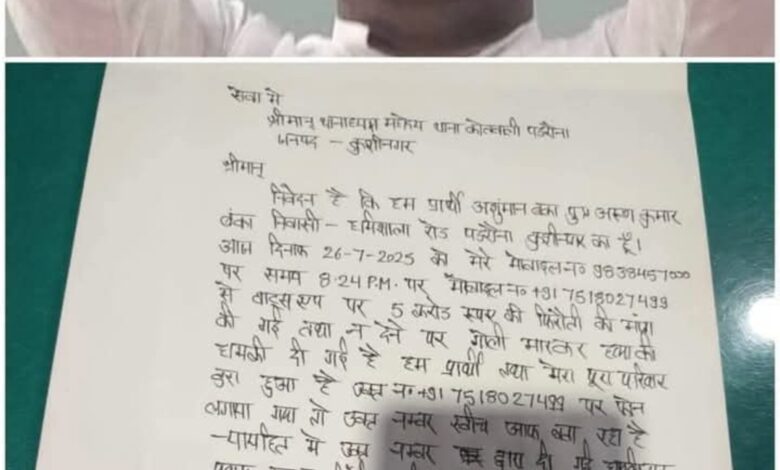 सेवा मे
श्रीमान् थानाध्यक्ष महोदय थाना कोतवाली पडरौना
जनपद - कुशीनगर
श्रीमान्
निवेदन है कि हम प्रार्थी अशुंमान बंका पुत्र अरूण कुमार
बंका निवासी - धर्मशाला रोड पडरौना कुशीनगर का हूँ।
आज दिनांक 26-7-2025 को मेरे मोबाइल न० 9838457000
पर समय 8:24 P.M. पर मोबाइल न० +91 7518027499
से वाट्सएप पर 5 करोड रूपए की फिरौती की मांग
की गई तथा न देने पर गोली मारकर हत्या की
धमकी दी गई है हम प्रार्थी तथा मेरा पूरा परिवार
डरा हुआ है उक्त न० +91 7518027499 पर फोन
लगाया गया तो उक्त नम्बर स्वीच आफ बता रहा है
न्यायहित मे उक्त नम्बर द्वारा दी गई